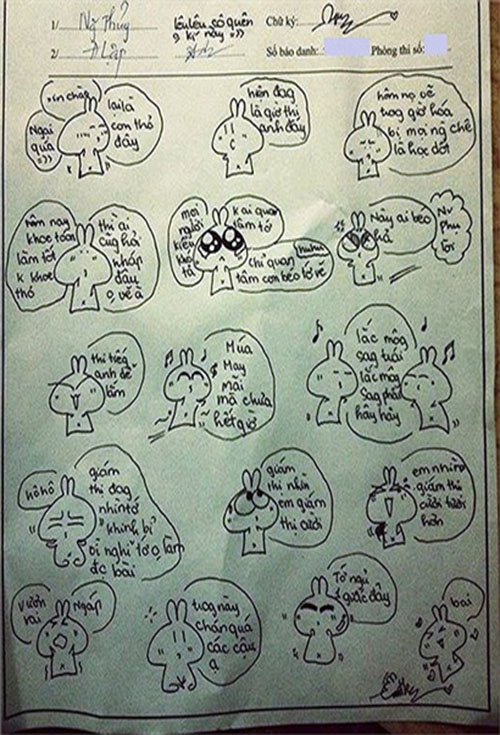 1/ Ng Thủy
2/ P Lập
lêu lêu số quên
kí này =))
Chữ ký:
Số báo danh:
Phòng thi số:
xin chào
lại là
con thỏ
đây
Ngại
quá
=))
hiện đag
là giờ thi
anh đây
hôm nọ vẽ
trog giờ hóa
bị mọi ng chê
là học dốt
hôm nay
khoe toán
làm tốt
k khoe
thó
thì ai
cũg hỏi
nháp
đâu
vẽ à
mọi
người
kiểu
kho
tả
k ai quan
tâm tớ
huhu
chỉ quan
tâm con béo tớ vẽ
Này ai béo
hả
thi tiếg
anh dễ
lắm
Múa
may
mãi
mà chưa
hết giờ
lắc môg
sag trái
lắc môg
sag phải
hây hây
hô hô
giám
thị đag
nhìn tớ
khinh bỉ
vì nghĩ tớ o làm
đc bài
giám
thị nhìn
em giám
thị cười
em nhìn
giám thị
cười tươi
hơn
vươn
vai
Ngáp
trag này
chán quá
các cậu
ạ
Tớ ngủ
trước đây
bai